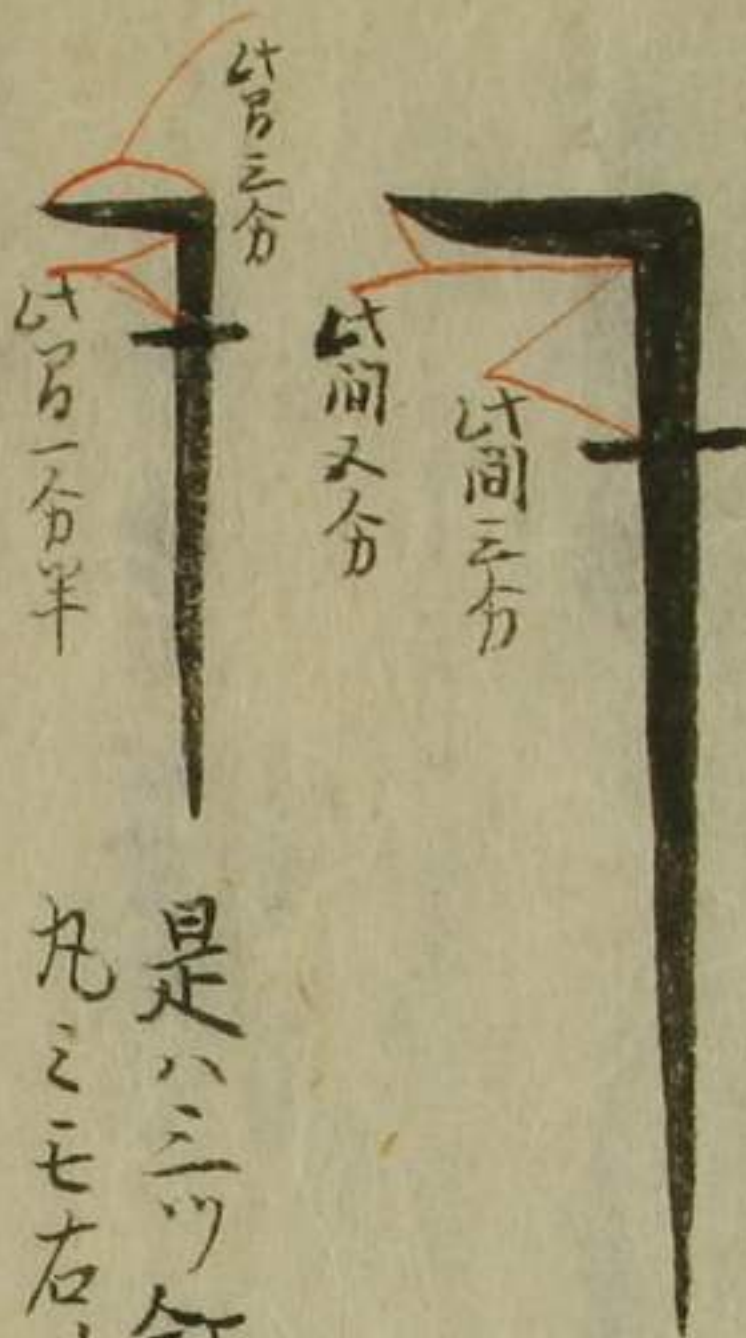 此間三分
此間五分
此間三分
此間一分半
是ハ三ツ
丸ミモ右